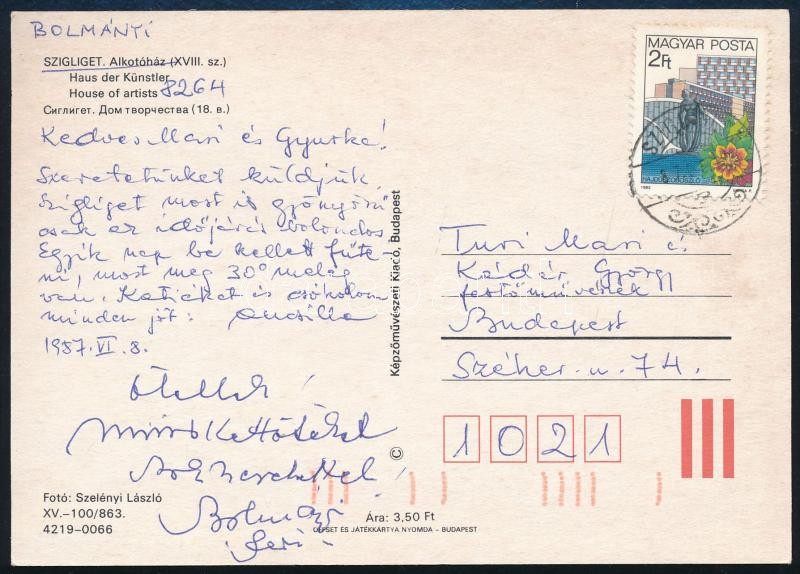 BOLMÁNYI
SZIGLIGET. Alkotóház (XVIII. sz.)
Haus der Künstler
House of artists 8264
Сиглигет. Дом творчества (18. в.)
Kedves Mari és Gyurka!
Szeretetünket küldjük
Szigliget most is gyönyörű
csak az időjárás bolondos
Egyik nap be kellett fűte-
ni, most meg 30° meleg
van. Katiékat is csókolom
minden jót: Ancsilla
1987. VI. 8.
ölellek!
Sok szeretettel
Bolmányi
Feri
Fotó: Szelényi László
XV.–100/863.
4219-0066
Képzőművészeti Kiadó, Budapest
©
Ára: 3,50 Ft
OFFSET ÉS JÁTÉKKÁRTYA NYOMDA – BUDAPEST
MAGYAR POSTA
2Ft
Turi Mari és
Kádár György
festőművészek
Budapest
Széher u. 74.
1021